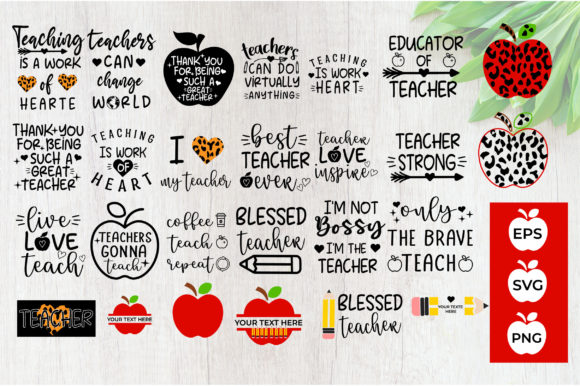 Teaching
IS A WORK
of
HEARTE
teachers
CAN
change
WORLD
THANK YOU
FOR BEING
SUCH A
GREAT
TEACHER
teachers
CAN DO
VIRTUALLY
ANYTHING
TEACHING
IS WORK
HEART
EDUCATOR
OF
TEACHER
THANK YOU
FOR BEING
SUCH A
GREAT
TEACHER
TEACHING
IS WORK
OF
HEART
I
my teacher
best
TEACHER
ever
teacher
LOVE
inspire
TEACHER
STRONG
live
LOVE
teach
TEACHERS
GONNA
teach
coffee
teach
repeat
BLESSED
teacher
I'M NOT
Bossy
I'M THE
TEACHER
only
THE BRAVE
TEACH
EPS
SVG
PNG
TEACHER
YOUR TEXT HERE
YOUR TEXT HERE
BLESSED
teacher
YOUR TEXTE HERE